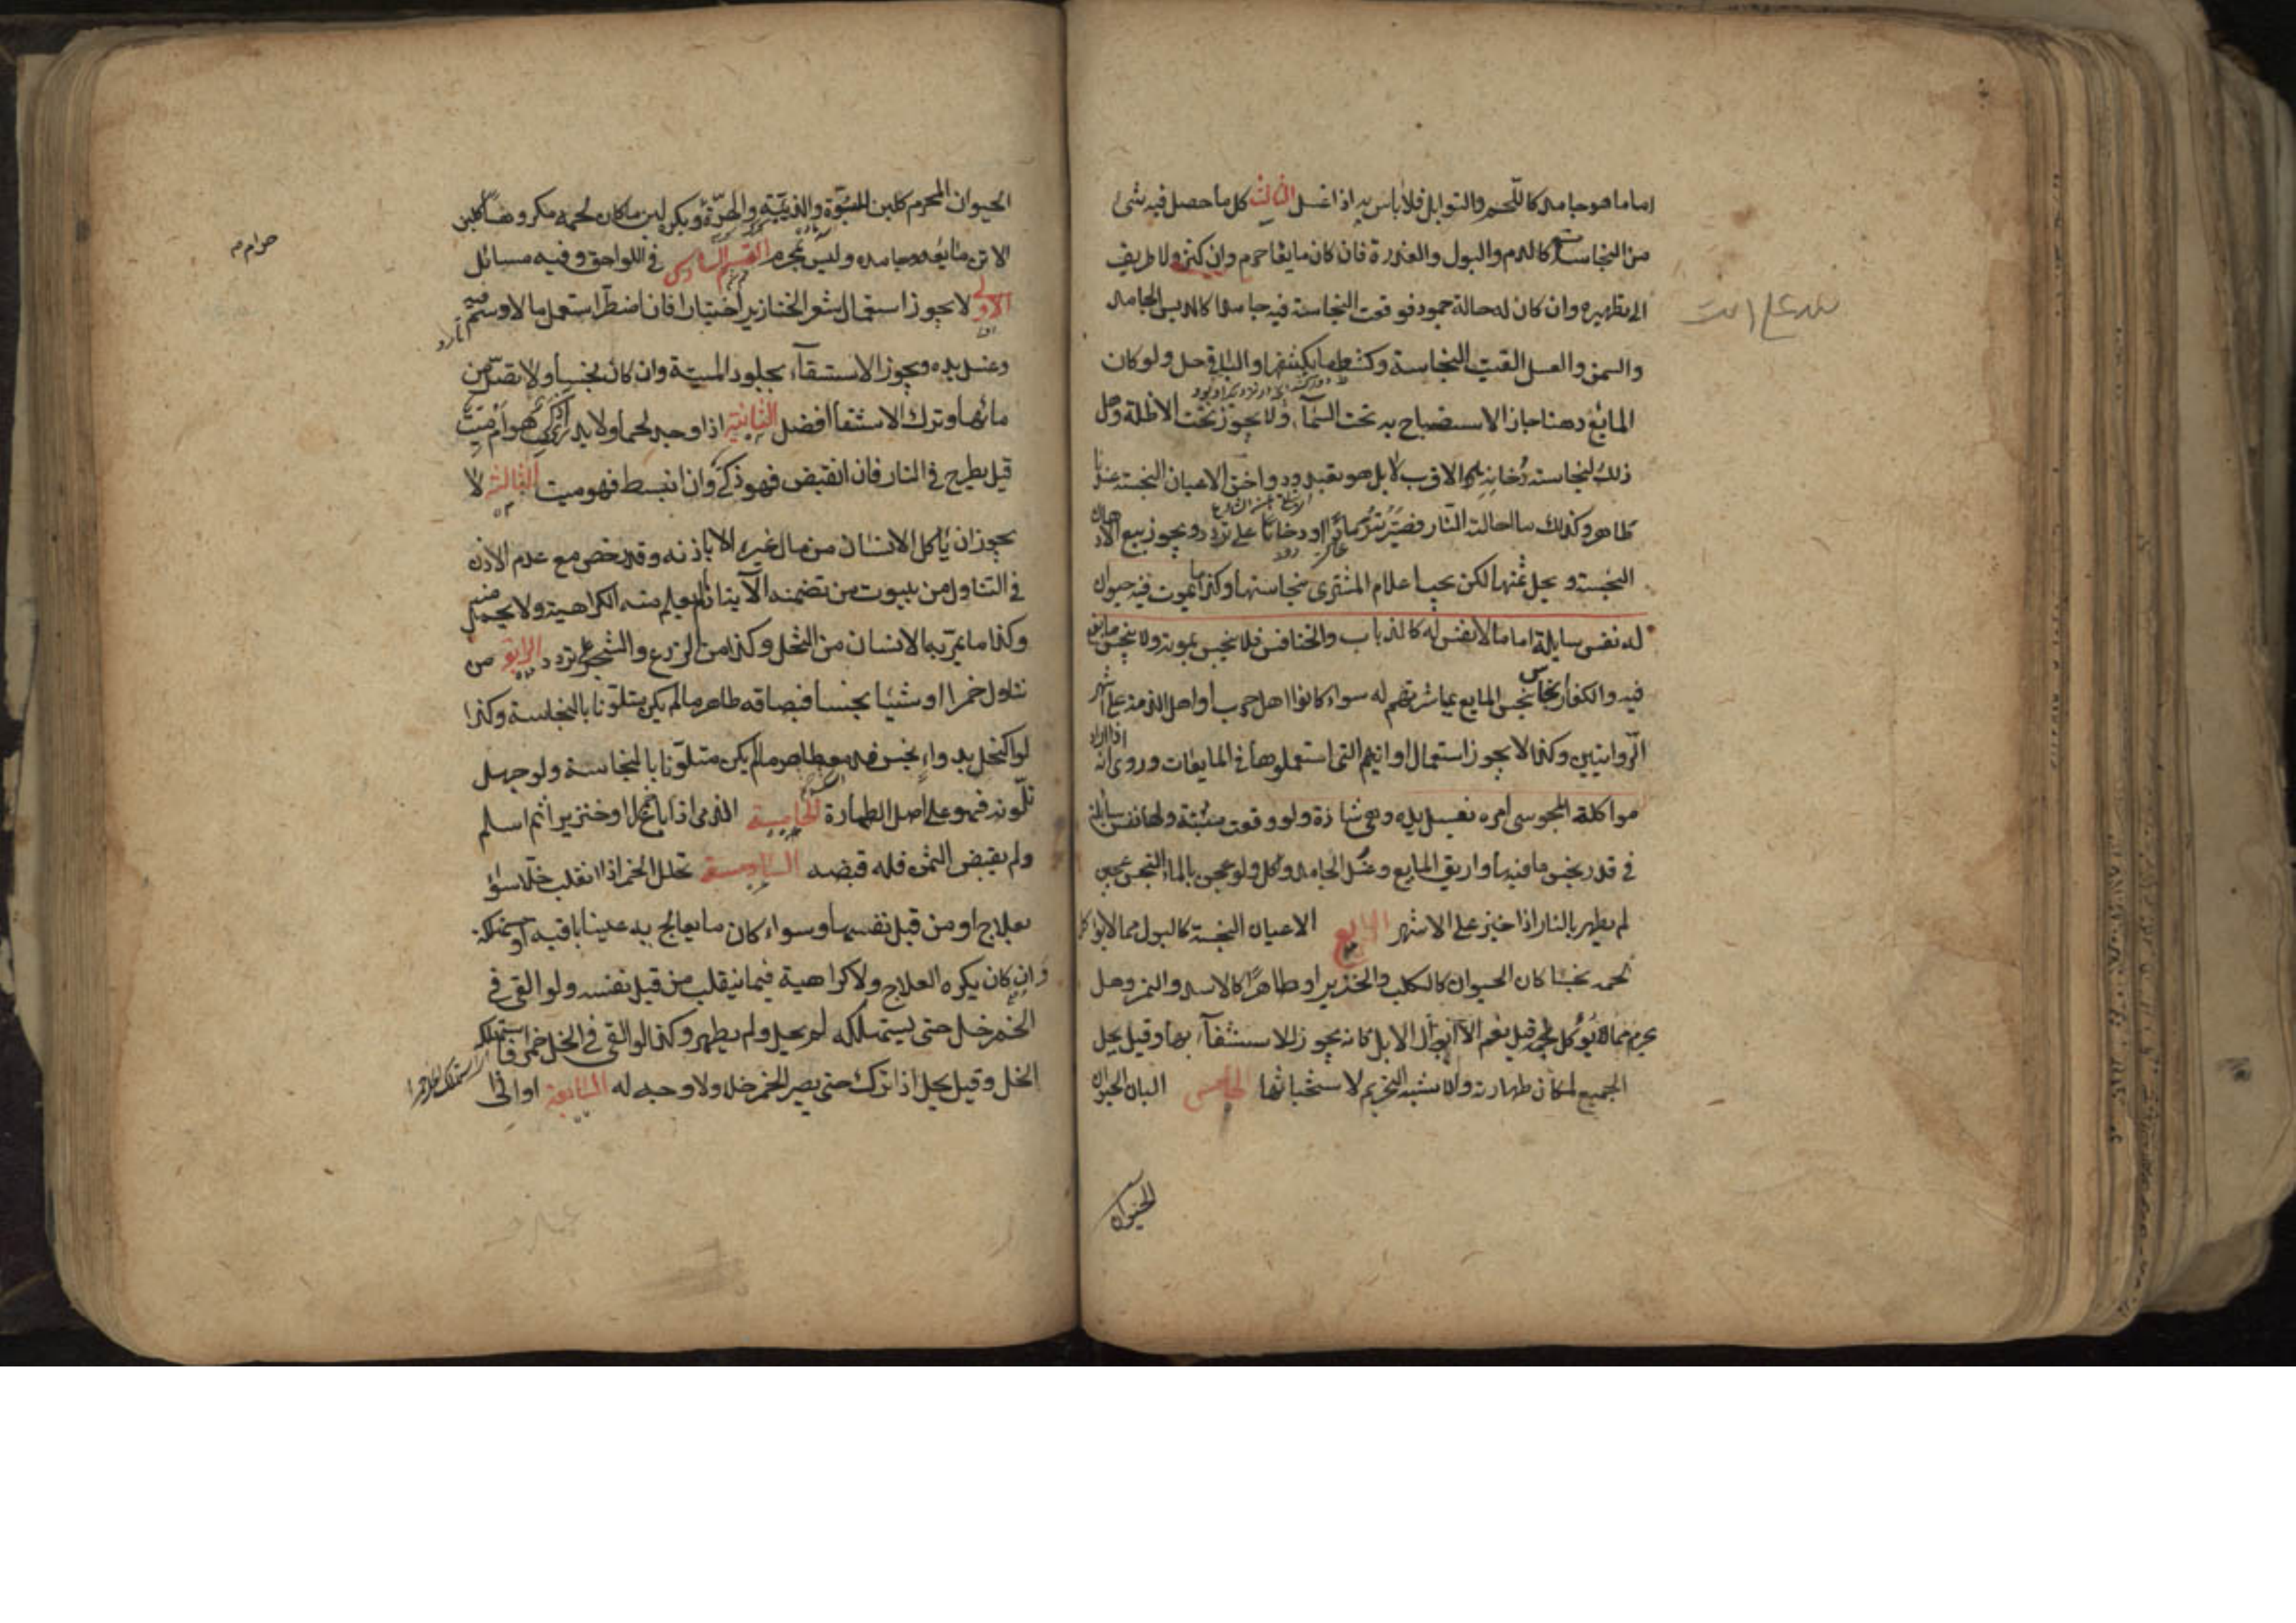 اما ما هو جامد كاللحم والتوابل فلا باس به اذا غسل الثالث كل ما حصل فيه شئ
من النجاسة كالدم والبول والعذرة فان كان مايعا حرم وان كثر ولا طريق
الى تطهيره وان كان له حالة جمود فوقعت النجاسة فيه جامدا كالدبس الجامد
والسمن والعسل القيت النجاسة وكشط ما يكتنفها والباقي حل ولو كان
المايع دهنا جاز الاستصباح به تحت السماء ولا يجوز تحت الاظلة وهل
ذلك لنجاسة دخانه الاقرب لا بل هو تعبد ودواخن الاعيان النجسة عندنا
طاهرة وكذلك ما احالته النار فصيرته رمادا او دخانا على تردد ويجوز بيع الادهان
النجسة ويحل ثمنها لكن يجب اعلام المشتري بنجاستها وكذا ما يموت فيه حيوان
له نفس سايلة اما ما لا نفس له كالذباب والخنافس فلا ينجس بموته ولا ينجس ما يقع
فيه والكفار انجاس ينجس المايع بمباشرتهم له سواء كانوا اهل حرب او اهل الذمة على اشهر
الروايتين وكذا لا يجوز استعمال اوانيهم التي استعملوها في المايعات وروى انه اذا اراد
مواكلة المجوسي امره بغسل يده وهي شاذة ولو وقعت ميتة ولها نفس سايلة
في قدر نجس ما فيها واريق المايع وغسل الجامد واكل ولو عجن بالماء النجس عجين
لم يطهر بالنار اذا خبز على الاشهر الرابع الاعيان النجسة كالبول مما لا يوكل
لحمه نجسا كان الحيوان كالكلب والخنزير او طاهرا كالاسد والنمر وهل
يحرم مما يوكل لحمه قيل نعم الا ابوال الابل فانه يجوز الاستشفاء بها وقيل يحل
الجميع لمكان طهارته والاشبه التحريم لاستخباثها الخامس البان الحيوان
الحيوان
الحيوان المحرم كلبن اللبوة والذئبة والهرة ويكره لبن ما كان لحمه مكروها كلبن
الاتن مايعه وجامده وليس بمحرم القسم السادس في اللواحق وفيه مسائل
الاولى لا يجوز استعمال شعر الخنازير اختيارا فان اضطر استعمل ما لا دسم فيه
وغسل يده ويجوز الاستسقاء بجلود الميتة وان كان نجسا ولا يصلي من
مائها وترك الاستقاء افضل الثانية اذا وجد لحما ولا يدري اذكي هو ام ميت
قيل يطرح في النار فان انقبض فهو ذكي وان انبسط فهو ميت الثالثة لا
يجوز ان ياكل الانسان من مال غيره الا باذنه وقد رخص مع عدم الاذن
في التناول من بيوت من تضمنه الآية اذا لم يعلم منه الكراهية ولا يحمل منه
وكذا ما يمر به الانسان من النخل وكذا من الزرع والشجر على تردد الرابعة من
تناول خمرا او شيئا نجسا فبصاقه طاهر ما لم يكن متلوثا بالنجاسة وكذا
لو اكتحل بدواء نجس فدمعه طاهر ما لم يكن متلوثا بالنجاسة ولو جهل
تلوثه فهو على اصل الطهارة الخامسة الذمي اذا باع خمرا او خنزيرا ثم اسلم
ولم يقبض الثمن فله قبضه السادسة تحلل الخمر اذا انقلب خلا سواء
بعلاج او من قبل نفسها وسواء كان ما يعالج به عينا باقية او مستهلكة
وان كان يكره العلاج ولا كراهية فيما ينقلب من قبل نفسه ولو القي في
الخمر خل حتى يستهلكه لم يحل ولم يطهر وكذا لو القي في الخل خمر فاستهلكه
الخل وقيل يحل اذا ترك حتى يصير الخمر خلا ولا وجه له السابعة اواني